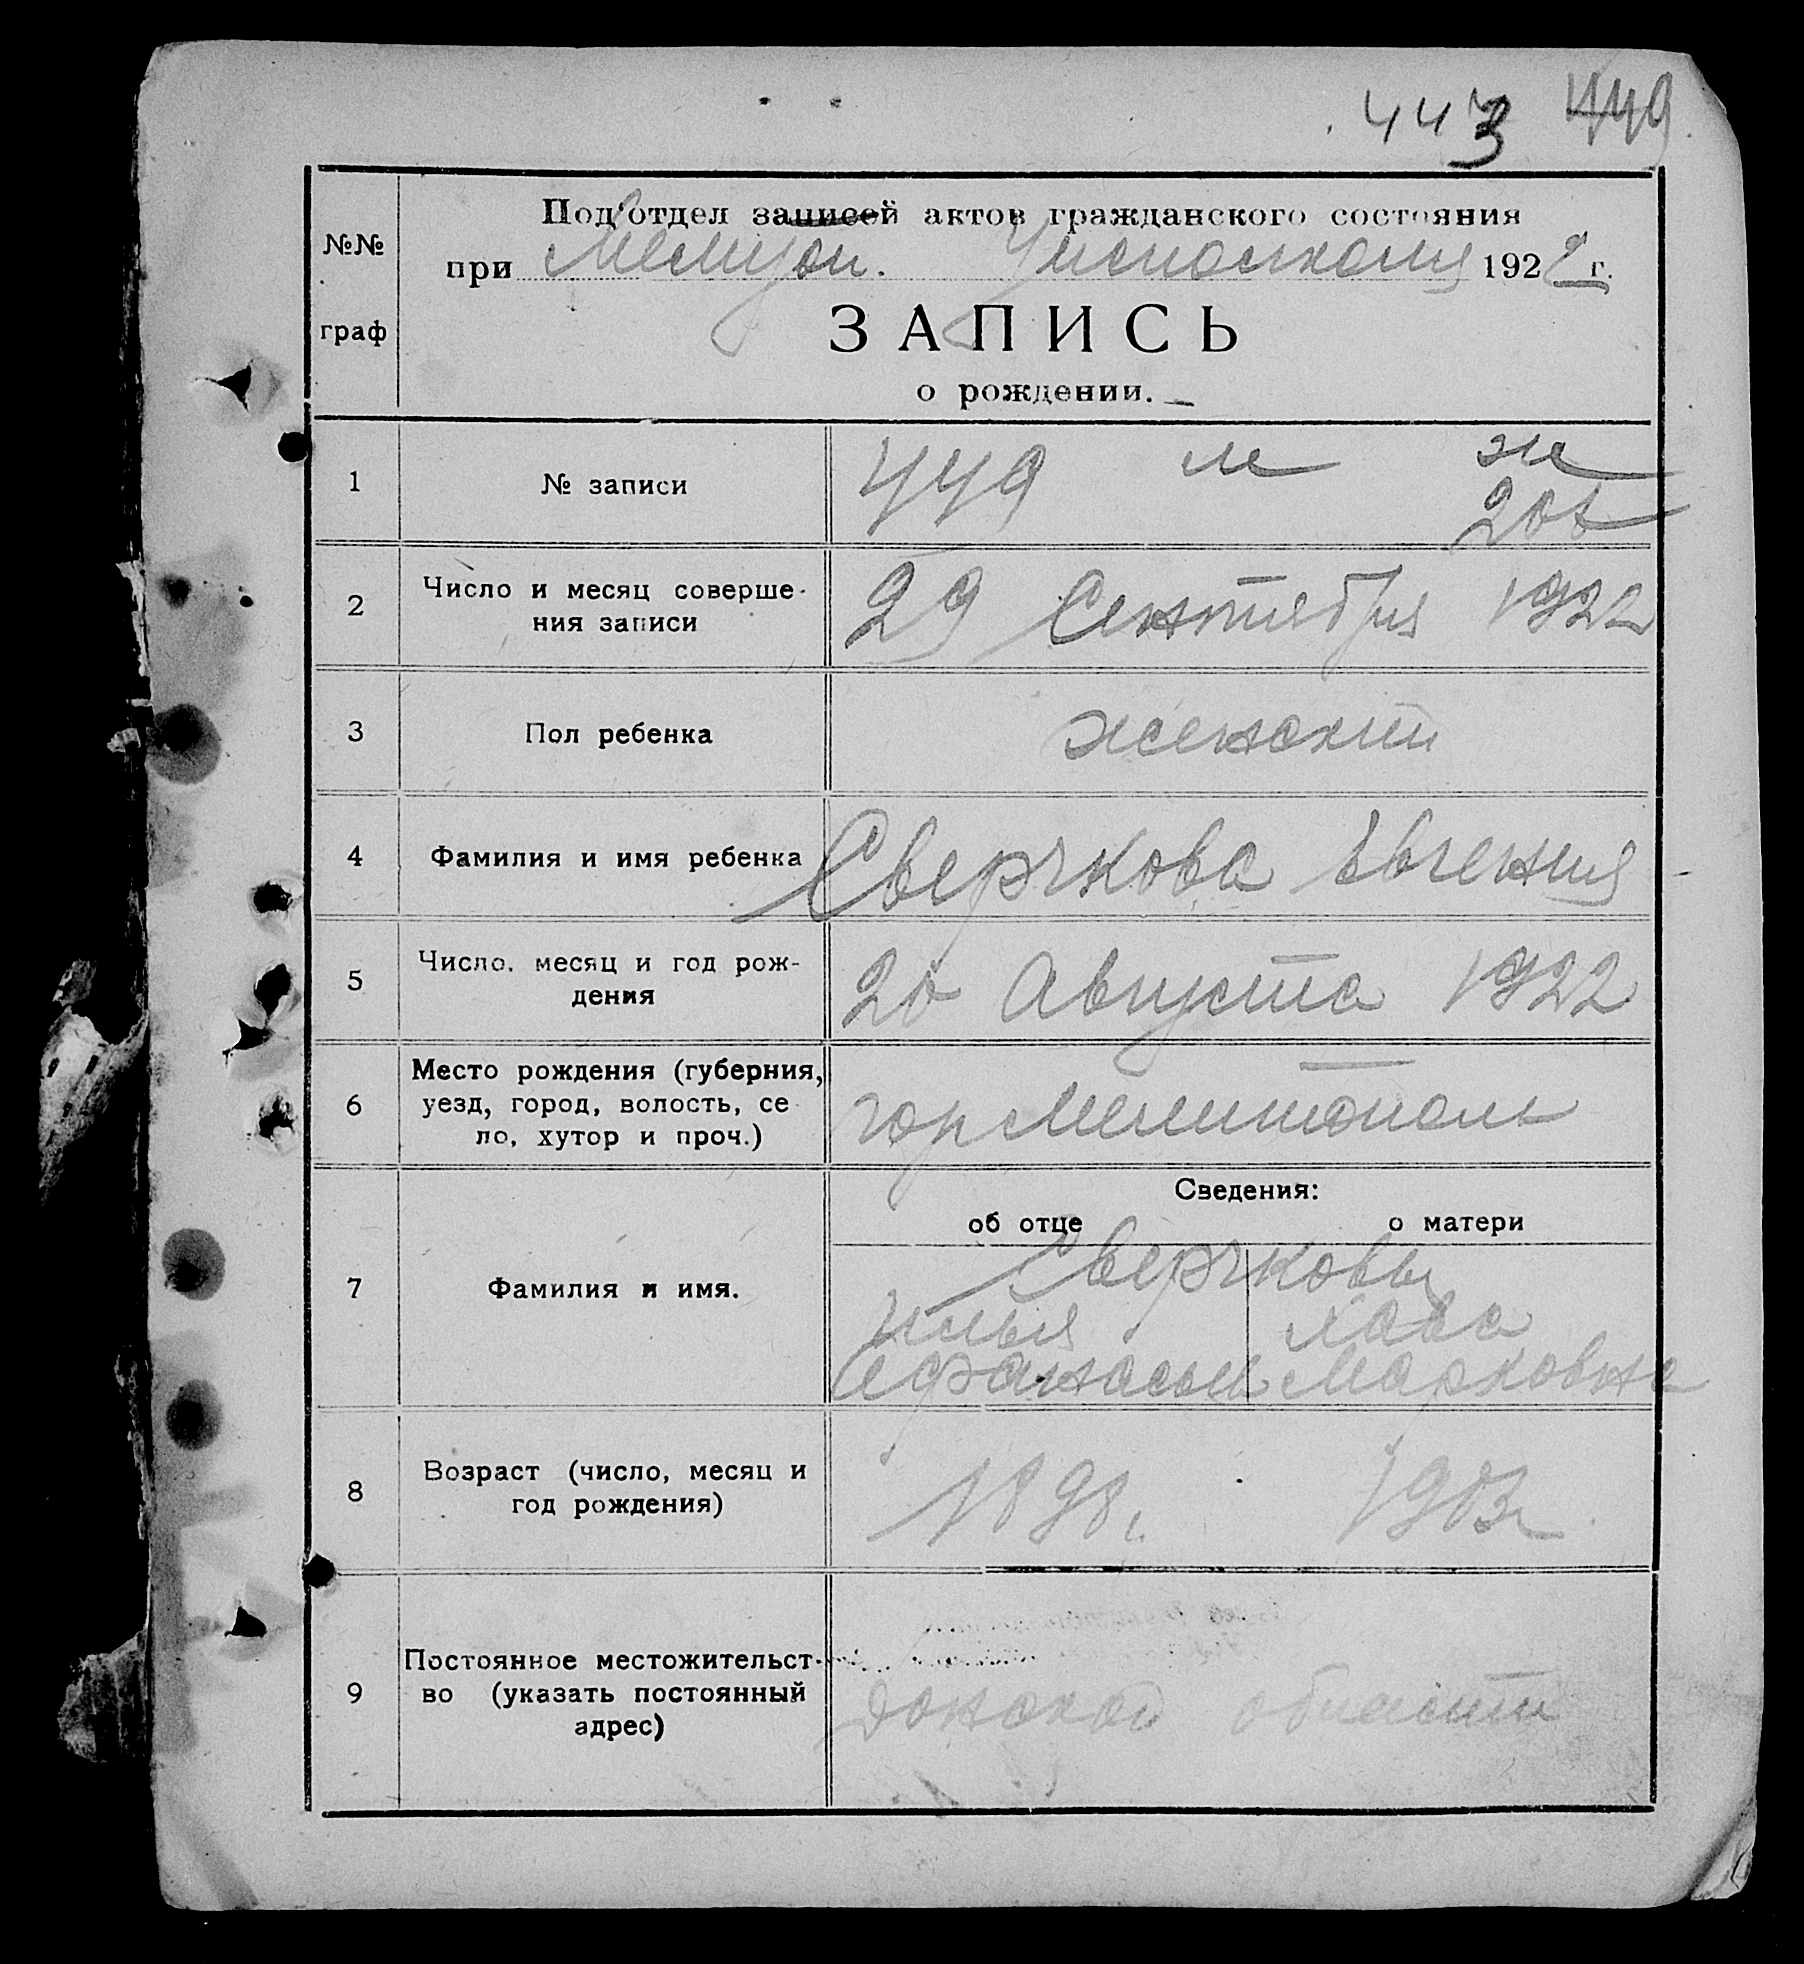 443 449
№№
граф
Под'отдел записей актов гражданского состояния
при Исполкома 1922 г.
ЗАПИСЬ
о рождении.
1 № записи 449 м ж
2 Число и месяц соверше-
ния записи 29 Сентября 1922
3 Пол ребенка женский
4 Фамилия и имя ребенка Сверчкова Евгения
5 Число, месяц и год рож-
дения 20 Августа 1922
6 Место рождения (губерния,
уезд, город, волость, се
ло, хутор и проч.) гор Мелитополь
Сведения:
об отце о матери
7 Фамилия и имя. Сверчковы
Илья Хава
Афанасьев Марковна
8 Возраст (число, месяц и
год рождения) 1898 г. 1903 г
9 Постоянное местожительст-
во (указать постоянный
адрес) Донской области